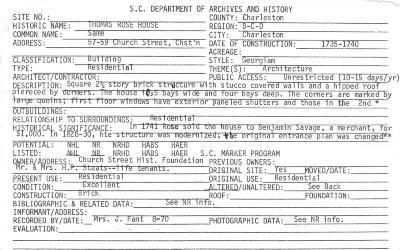 S.C. DEPARTMENT OF ARCHIVES AND HISTORY
SITE NO.: COUNTY: Charleston
HISTORIC NAME: THOMAS ROSE HOUSE REGION: B-C-D
COMMON NAME: Same CITY: Charleston
ADDRESS: 57-59 Church Street, Chst'n DATE OF CONSTRUCTION: 1735-1740
ACREAGE:
CLASSIFICATION: Building STYLE: Georgian
TYPE: Residential THEME(S): Architecture
ARCHITECT/CONTRACTOR: PUBLIC ACCESS: Unrestricted (10-15 days/yr)
DESCRIPTION: Square 2½ story brick structure with stucco covered walls and a hipped roof
pierced by dormers. The house is 5 bays wide and four bays deep. The corners are marked by
large quoins; first floor windows have exterior paneled shutters and those in the 2nd *
OUTBUILDINGS:
RELATIONSHIP TO SURROUNDINGS: Residential
HISTORICAL SIGNIFICANCE: In 1741 Rose sold the house to Benjamin Savage, a merchant, for
$1,000. In 1828-30, hte structure was modernized, the original entrance plan was changed**
POTENTIAL: NHL NR NRHD HABS HAER
LISTED: NHL NR NRHD HABS HAER S.C. MARKER PROGRAM
OWNER/ADDRESS: Church Street Hist. Foundation PREVIOUS OWNERS:
Mr. & Mrs. H.P. Staats--life tenants. ORIGINAL SITE: Yes MOVED/DATE:
PRESENT USE: Residential ORIGINAL USE: Residential
CONDITION: Excellent ALTERED/UNALTERED: See Back
CONSTRUCTION: brick ROOF: FOUNDATION:
BIBLIOGRAPHIC & RELATED DATA: See NR info.
INFORMANT/ADDRESS:
RECORDED BY/DATE: Mrs. J. Fant 8-70 PHOTOGRAPHIC DATA: See NR info.
EVALUATION: